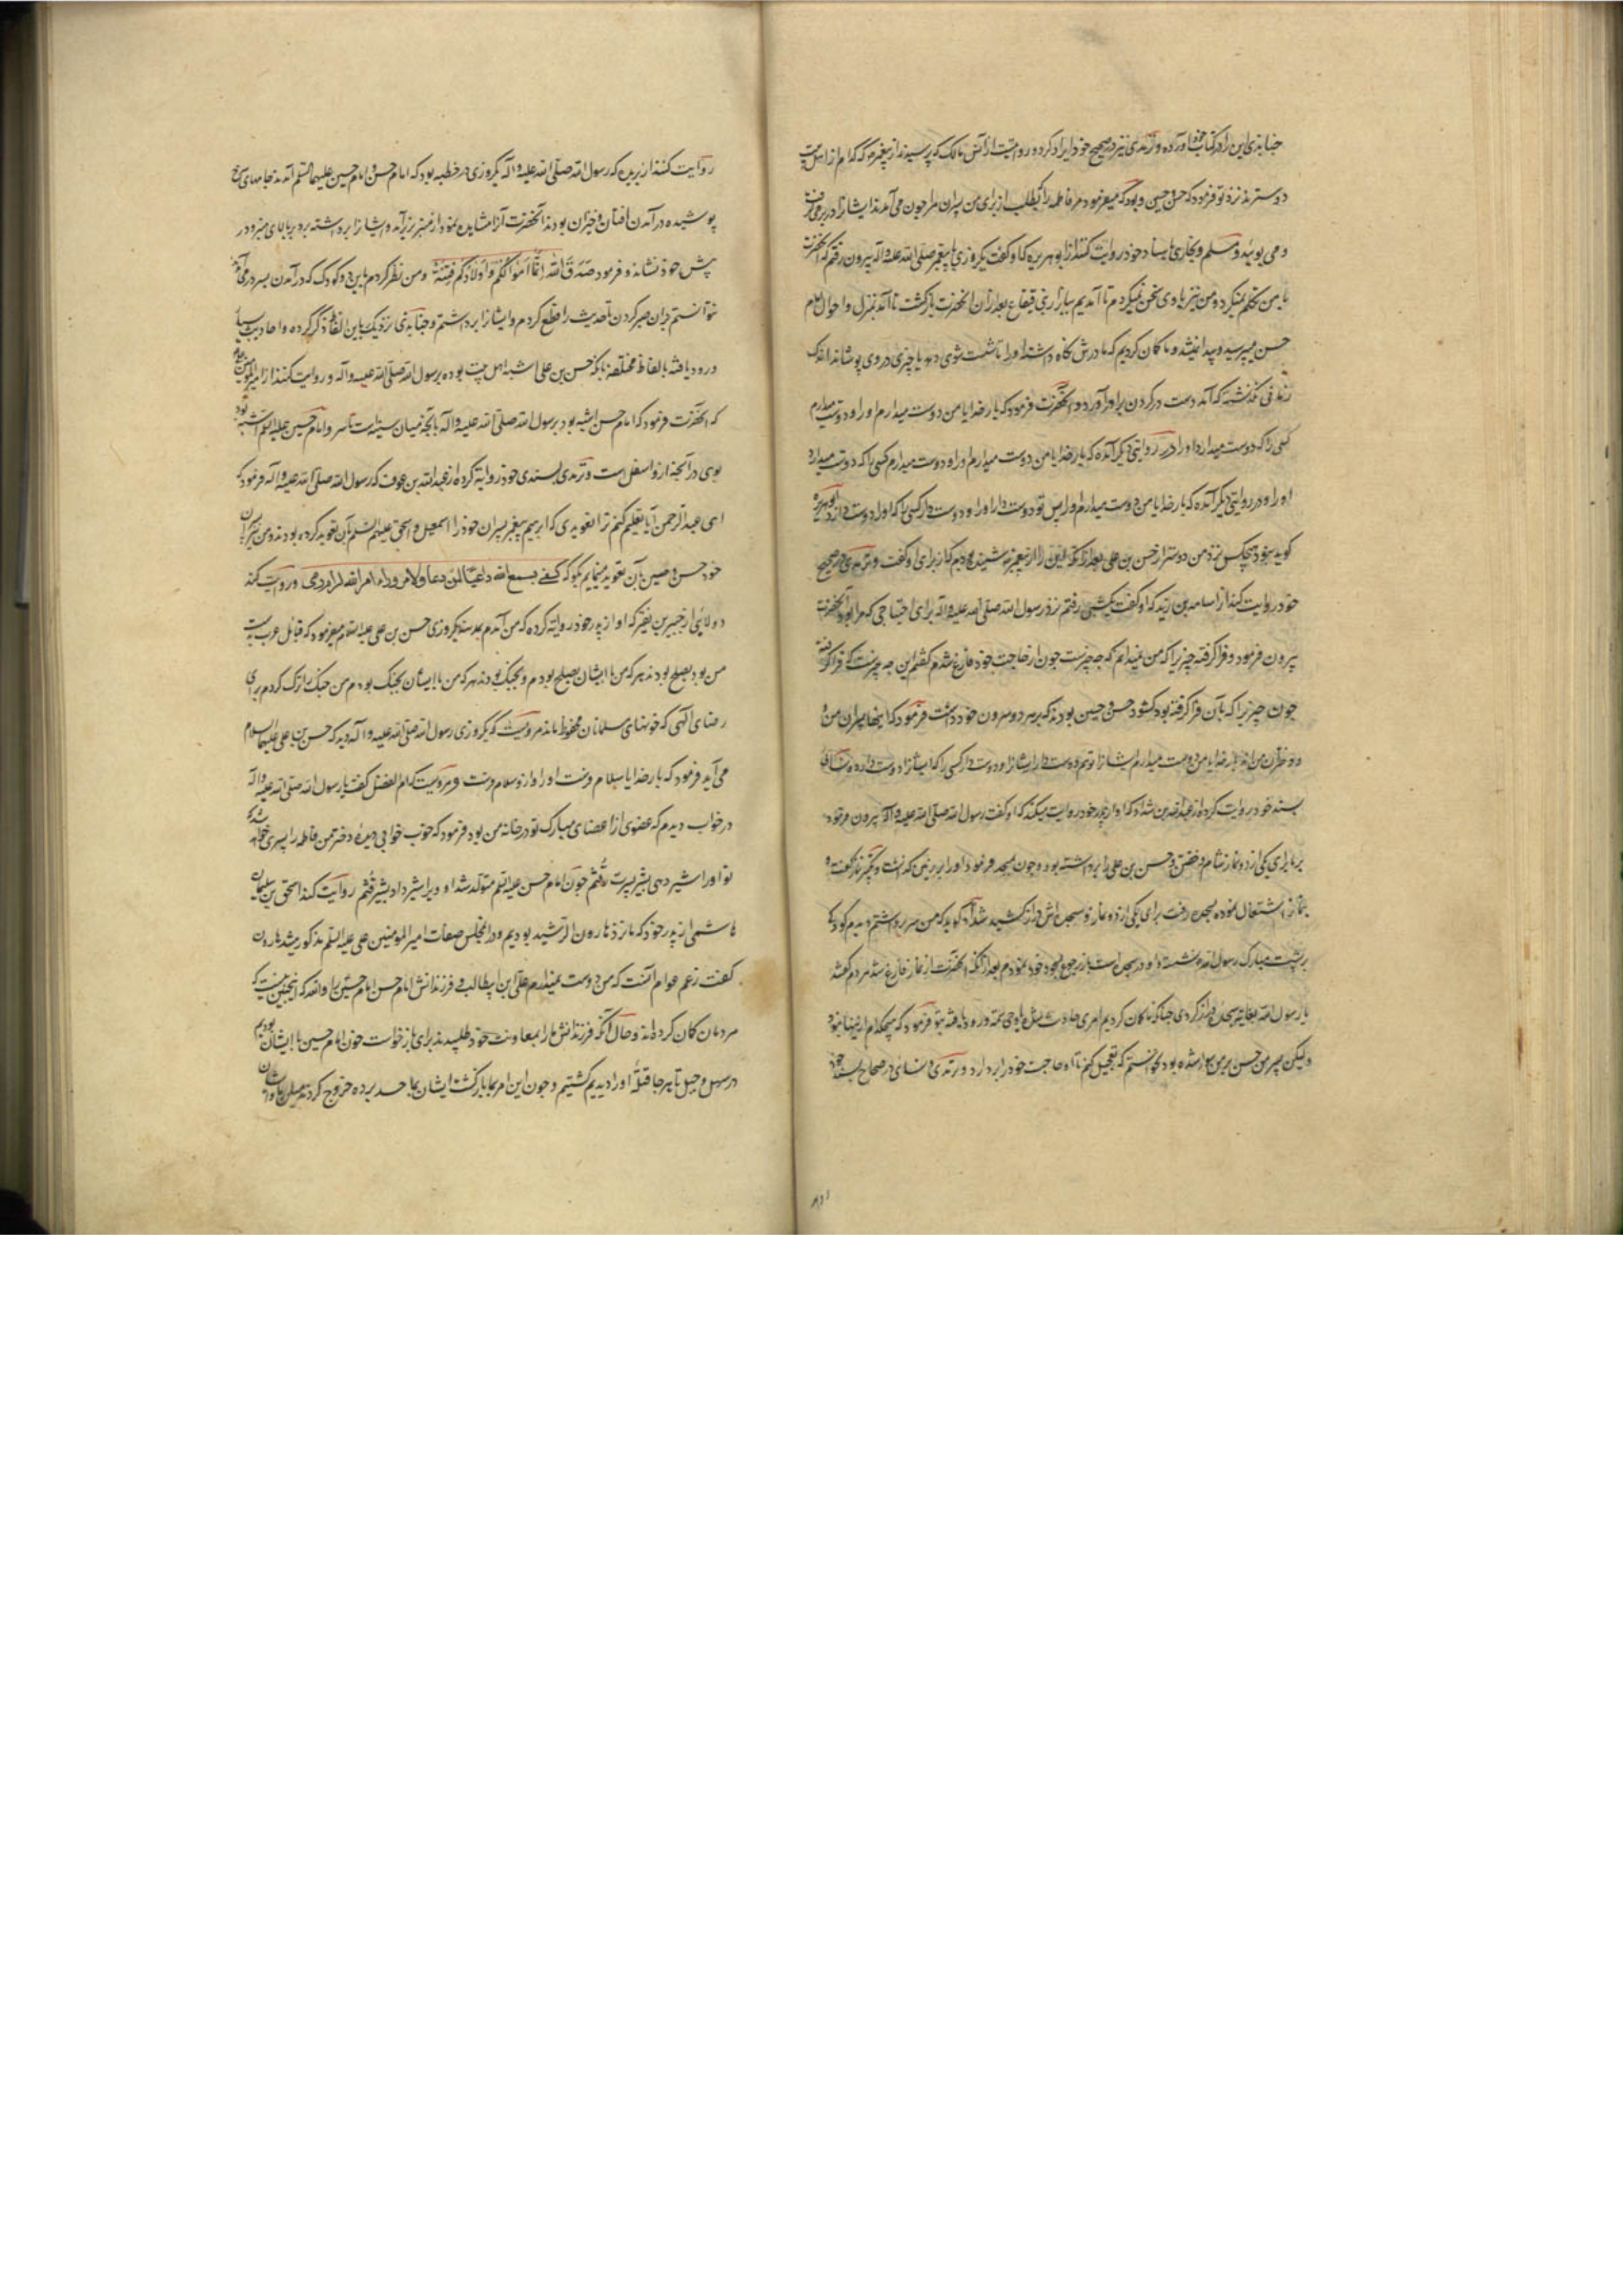 جنابذی این را در کتاب خود آورده و ترمذی نیز در صحیح خود ایراد کرده و رویست از انس مالک که پرسیدند از پیغمبر که کدام از اهل بیت
دوستر ند نزد تو فرمود که حسن و حسین و بود که میفرمود مر فاطمه را که بطلب از برای من پسران مرا چون می آمدند ایشانرا در بر می گرفت
و می بوئید و مسلم و بخاری باسناد خود روایت کنند از ابو هریره که او گفت یکروزی با پیغمبر صلی الله علیه و اله بیرون رفتم که آنحضرت
با من تکلم نمیکرد و من نیز با وی سخن نمیکردم تا آمدیم ببازار بنی قینقاع بعد از آن آنحضرت بازگشت تا آمد بمنزل و احوال امام
حسن میپرسید و پیدا نمیشد و ما کمان کردیم که مادرش نگاه داشته او را تا شست شوی دهد یا چیزی در وی پوشاند اندک
زمانی نگذشته که آمد دست در گردن براورد آورد و آنحضرت فرمود که بار خدایا من دوست میدارم او را و دوست میدارم
کسی را که دوست میدارد او را و در روایتی دیگر آمده که بار خدایا من دوست میدارم او را و دوست میدارم کسی را که دوست میدارد
او را و در روایتی دیگر آمده که بار خدایا من دوست میدارم او را پس تو دوست دار او را و دوست دار کسی را که او را دوست دارد ابو هریره
گوید نبود هیچکس نزد من دوستر از حسن بن علی بعد از آنکه این را از پیغمبر شنیده بودم که از برای او گفت و ترمذی در صحیح
خود روایت کند از اسامه بن زید که او گفت که شبی رفتم نزد رسول الله صلی الله علیه و اله برای احتیاجی که مرا بود آنحضرت
بیرون فرمود و فرا گرفته چیزیرا که من نمیدانم که چه چیزست چون از حاجت خود فارغ شدم گفتم این چه چیزست که فرا گرفته
چون چیزیرا که بآن فرا گرفته بود گشود حسن و حسین بودند که بر هر دو سرون خود داشت فرمود که اینها پسران من و
و دختران من اند بار خدایا من دوست میدارم ایشانرا تو هم دوست دار ایشانرا و دوست دار کسی را که ایشانرا دوست دارد و نسائی
بسند خود روایت کرده از عبدالله بن شداد که او از پدر خود روایت میکند که او گفت رسول الله صلی الله علیه و آله بیرون فرمود
بر ما برای یکی از دو نماز شام و خفتن و حسن بن علی را برداشته بود و چون بمسجد فرمود او را بر زمین گذاشت و تکبیر نماز گفت و
بنماز اشتغال نموده بسجده رفت برای یکی از دو نماز و سجده اش دراز کشیده شد گوید که من سر برداشتم دیدم کودکی
بر پشت مبارک رسول الله نشسته و او در سجده است باز رجوع بسجود خود نمودم بعد از آنکه آنحضرت از نماز فارغ شد مردم گفتند
یا رسول الله بغایت سجده دراز کردی چنانکه ما کمان کردیم امری حادث شد یا وحی بتو ورود یافته بتو فرمود که هیچکدام از اینها نبود
و لیکن پسر من حسن بر من سوار شده بود نخواستم که تعجیل کنم تا او حاجت خود را بر دارد و ترمذی و نسائی در صحاح بسند خود
روایت کنند از بریده که رسول الله صلی الله علیه و اله یکروزی در خطبه بود که امام حسن و امام حسین علیهما السلم آمدند جامهای سرخ
پوشیده در آمدن افتان و خیزان بودند آنحضرت آنرا مشاهده نمود از منبر بزیر آمد و ایشانرا برداشته برد ببالای منبر و در
پیش خود نشاند و فرمود صَدَقَ الله اِنَّما اَموالُکُم وَاَولادُکُم فِتنَة و من نظر کردم باین دو کودک که در آمدن بسر در می آمدند
نتوانستم در آن صبر کردن تا حدیث را قطع کردم و ایشانرا برداشتم و جنابذی نزدیک باین الفاظ ذکر کرده و احادیث بسیار
ورود یافته بالفاظ مختلفه بانکه حسن بن علی اشبه اهل بیت بوده برسول الله صلی الله علیه و اله و روایت کنند از امیر المؤمنین علیه السلم
که آنحضرت فرمود که امام حسن اشبه بود برسول الله صلی الله علیه و اله بآنچه میان سینه است تا سر و امام حسین علیه السلم اشبه بود
بوی در آنچه از و اسفل ست و ترمذی بسندی خود روایة کرده از عبد الله بن عوف که رسول الله صلی الله علیه و اله فرمود که
ای عبد الرحمن آیا تعلیم کنم ترا تعویذی که ابرهیم پیغمبر پسران خود را اسمعیل و اسحق علیهم السلم بآن تعویذ کرده بودند و من نیز پسران
خود حسن و حسین بآن تعویذ مینمایم بگو که کفی بسمع الله داعیا لمن دعا و لا مرمی وراء امر الله لرام رمی و روایت کند
دولابی از جبیر بن نفیر که او از پدر خود روایة کرده که من آمدم بمدینه یکروزی حسن بن علی علیه السلام میفرمود که قبائل عرب بدست
من بود بصلح بودند بهر که من با ایشان بصلح بودم و بجنگ بودند بهر که من با ایشان بجنگ بودم من جنگ را ترک کردم برای
رضای الهی که خونهای مسلمانان محفوظ ماند مرویست که یکروزی رسول الله صلی الله علیه و اله دید که حسن بن علی علیهما السلام
می آید فرمود که بار خدایا سلام ونت او را و از و سلام ونت و مرویست که ام الفضل گفت یا رسول الله صلی الله علیه و اله
در خواب دیدم که عضوی از اعضای مبارک تو در خانه من بود فرمود که خوب خوابی دیده دختر من فاطمه را پسری خواهد شد که
تو او را شیر دهی بشیر پسرت قُثم چون امام حسن علیه السلم متولد شد او ویرا شیر داد بشیر قُثم روایت کند اسحق بن سلیمان
هاشمی از پدر خود که ما نزد هارون الرشید بودیم و در آنمجلس صفات امیر المومنین علی علیه السلم مذکور میشد هارون
گفت زعم عوام آنست که من دوست نمیدارم علی ابن ابیطالب و فرزندانش امام حسن و امام حسین را والله که اینچنین نیست که
مردمان کمان کرده اند و حال آنکه فرزندانش ما را بمعاونت خود طلبیدند برای بازخواست خون امام حسین با ایشان بودیم
در سهل و جبل تا بهر جا قتلهٔ او را دیدیم کشتیم و چون این امر بما بازگشت ایشان بما حسد برده خروج کردند